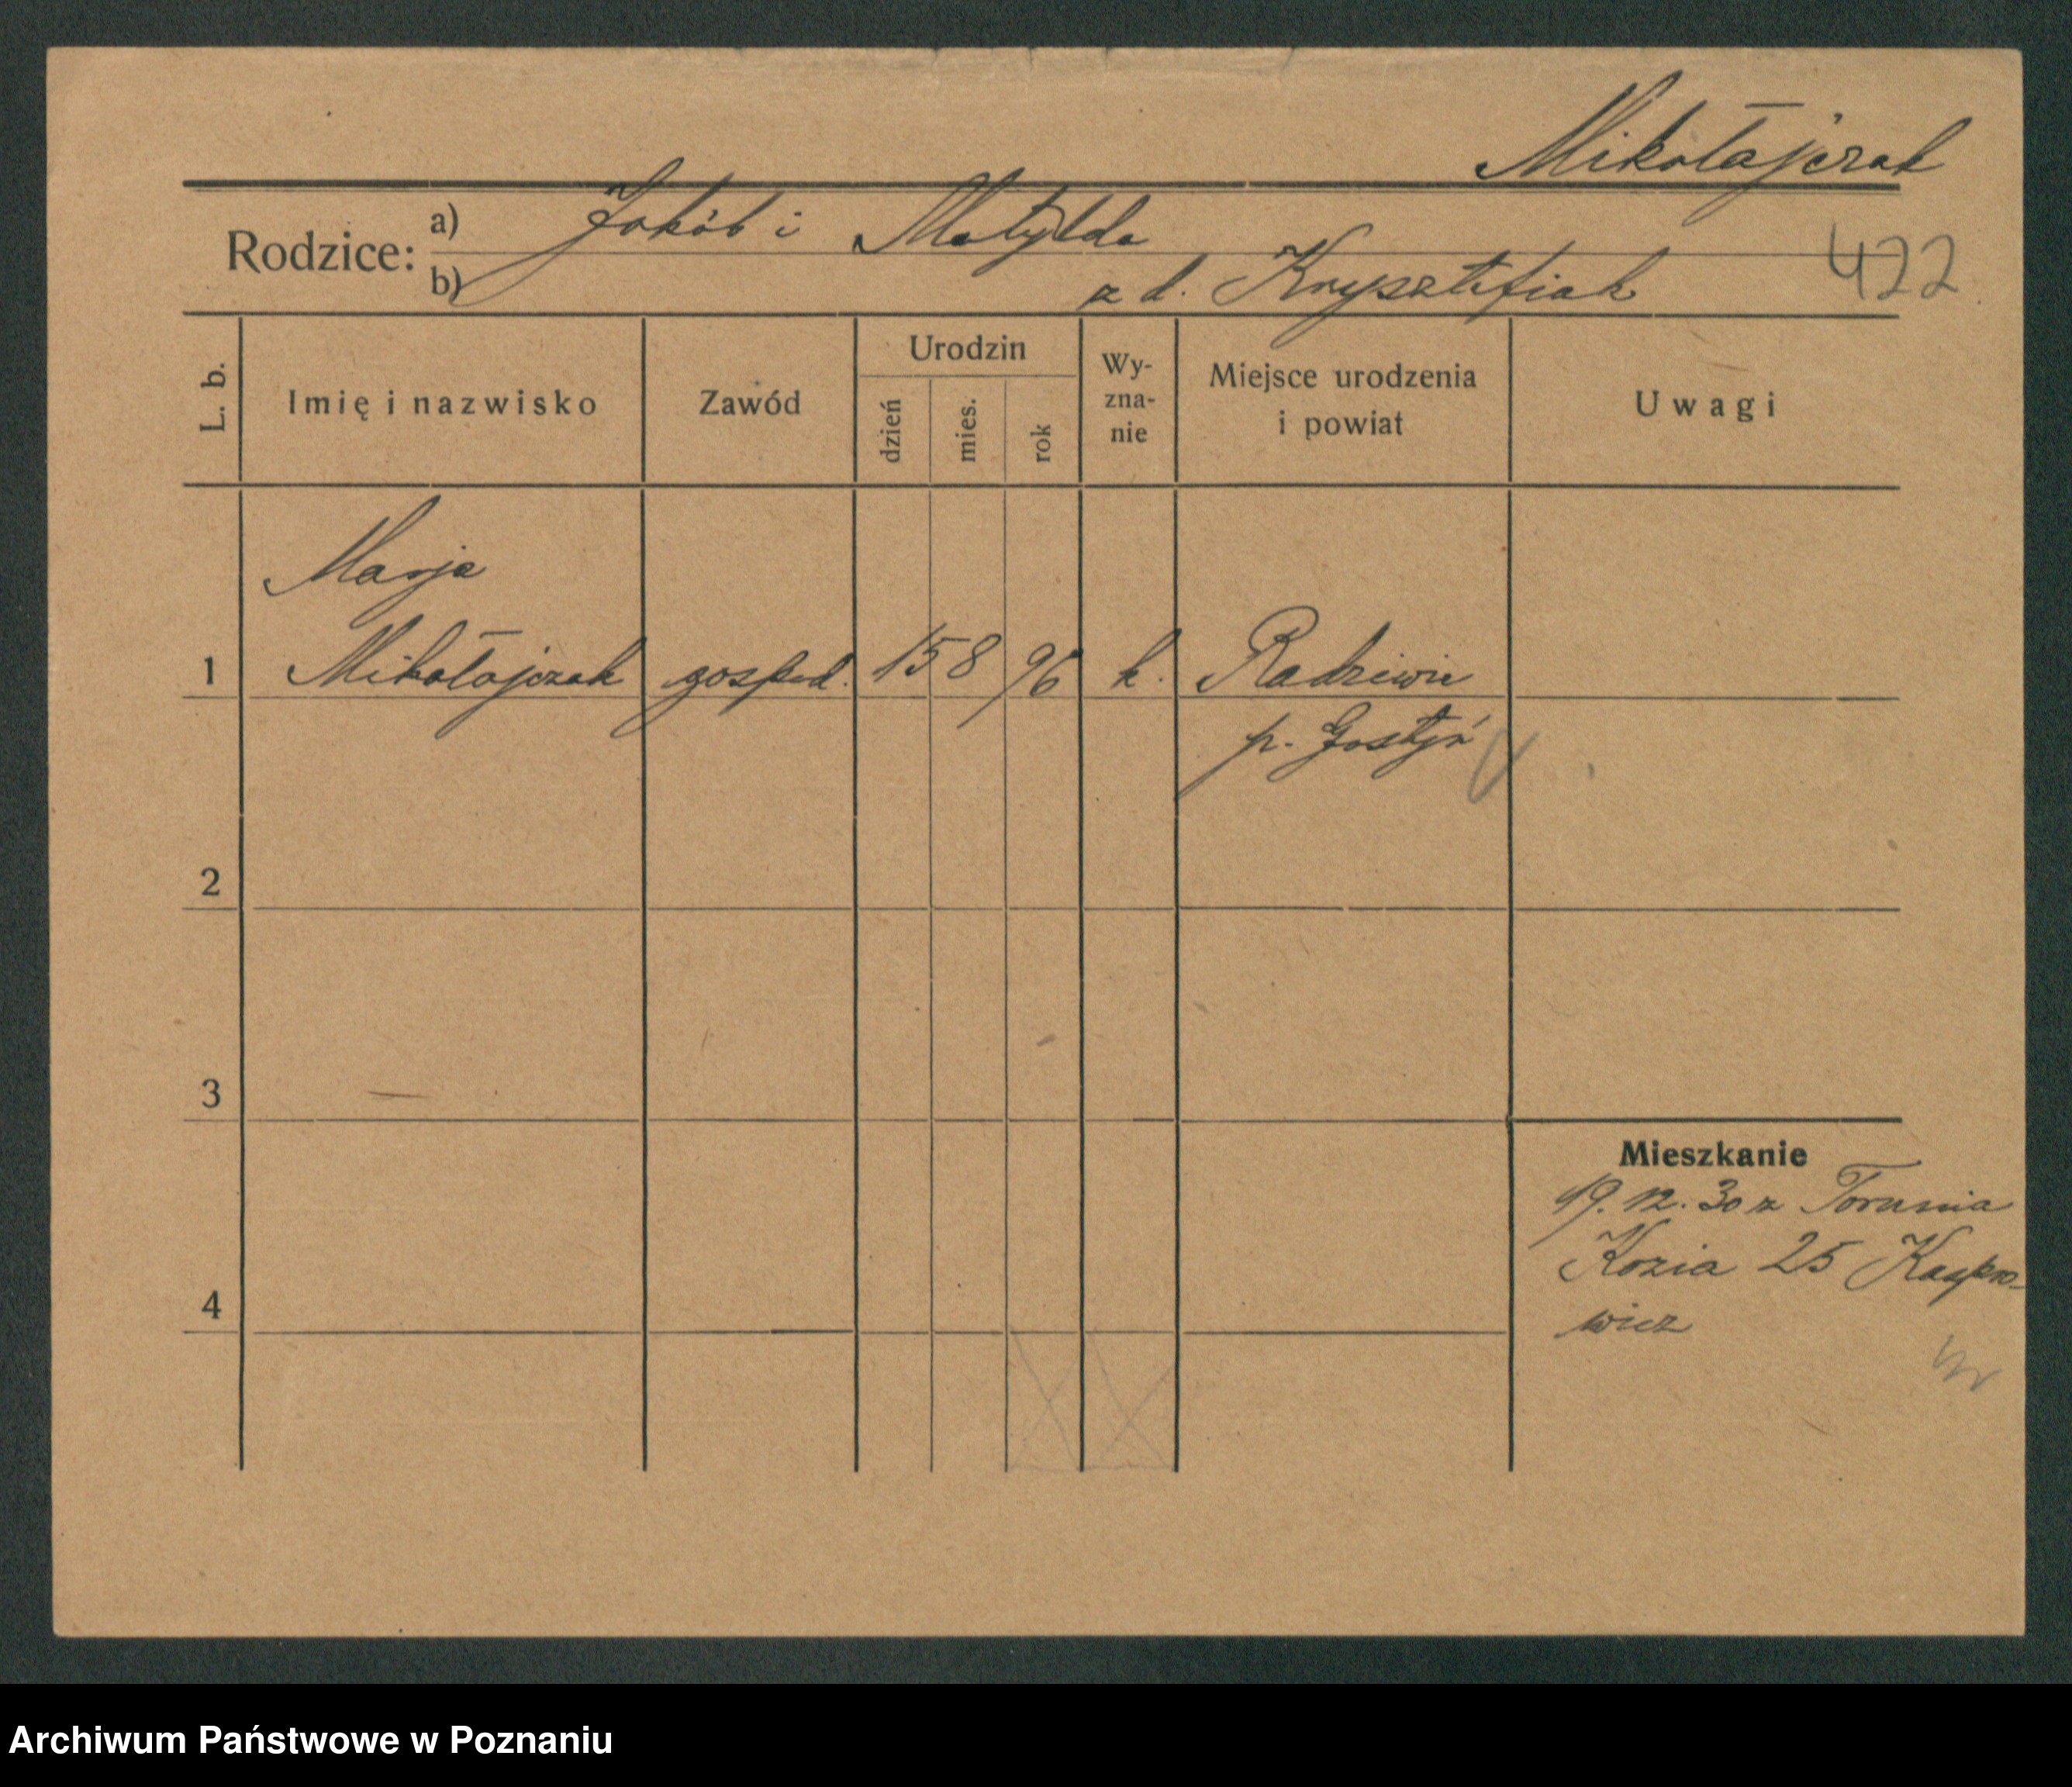 Mikołajczak
Rodzice: a) Jakób i Matylda
b) z d. Krysztofiak
422
L. b. Imię i nazwisko Zawód Urodzin dzień mies. rok Wy-zna-nie Miejsce urodzenia i powiat Uwagi
Marja
1 Mikołajczak gospod. 15 8 96 k. Radziwie
p. Gostyń
2
3
Mieszkanie
19. 12. 30 z Torunia
Kozia 25 Kaspro-
wicz
4
Archiwum Państwowe w Poznaniu